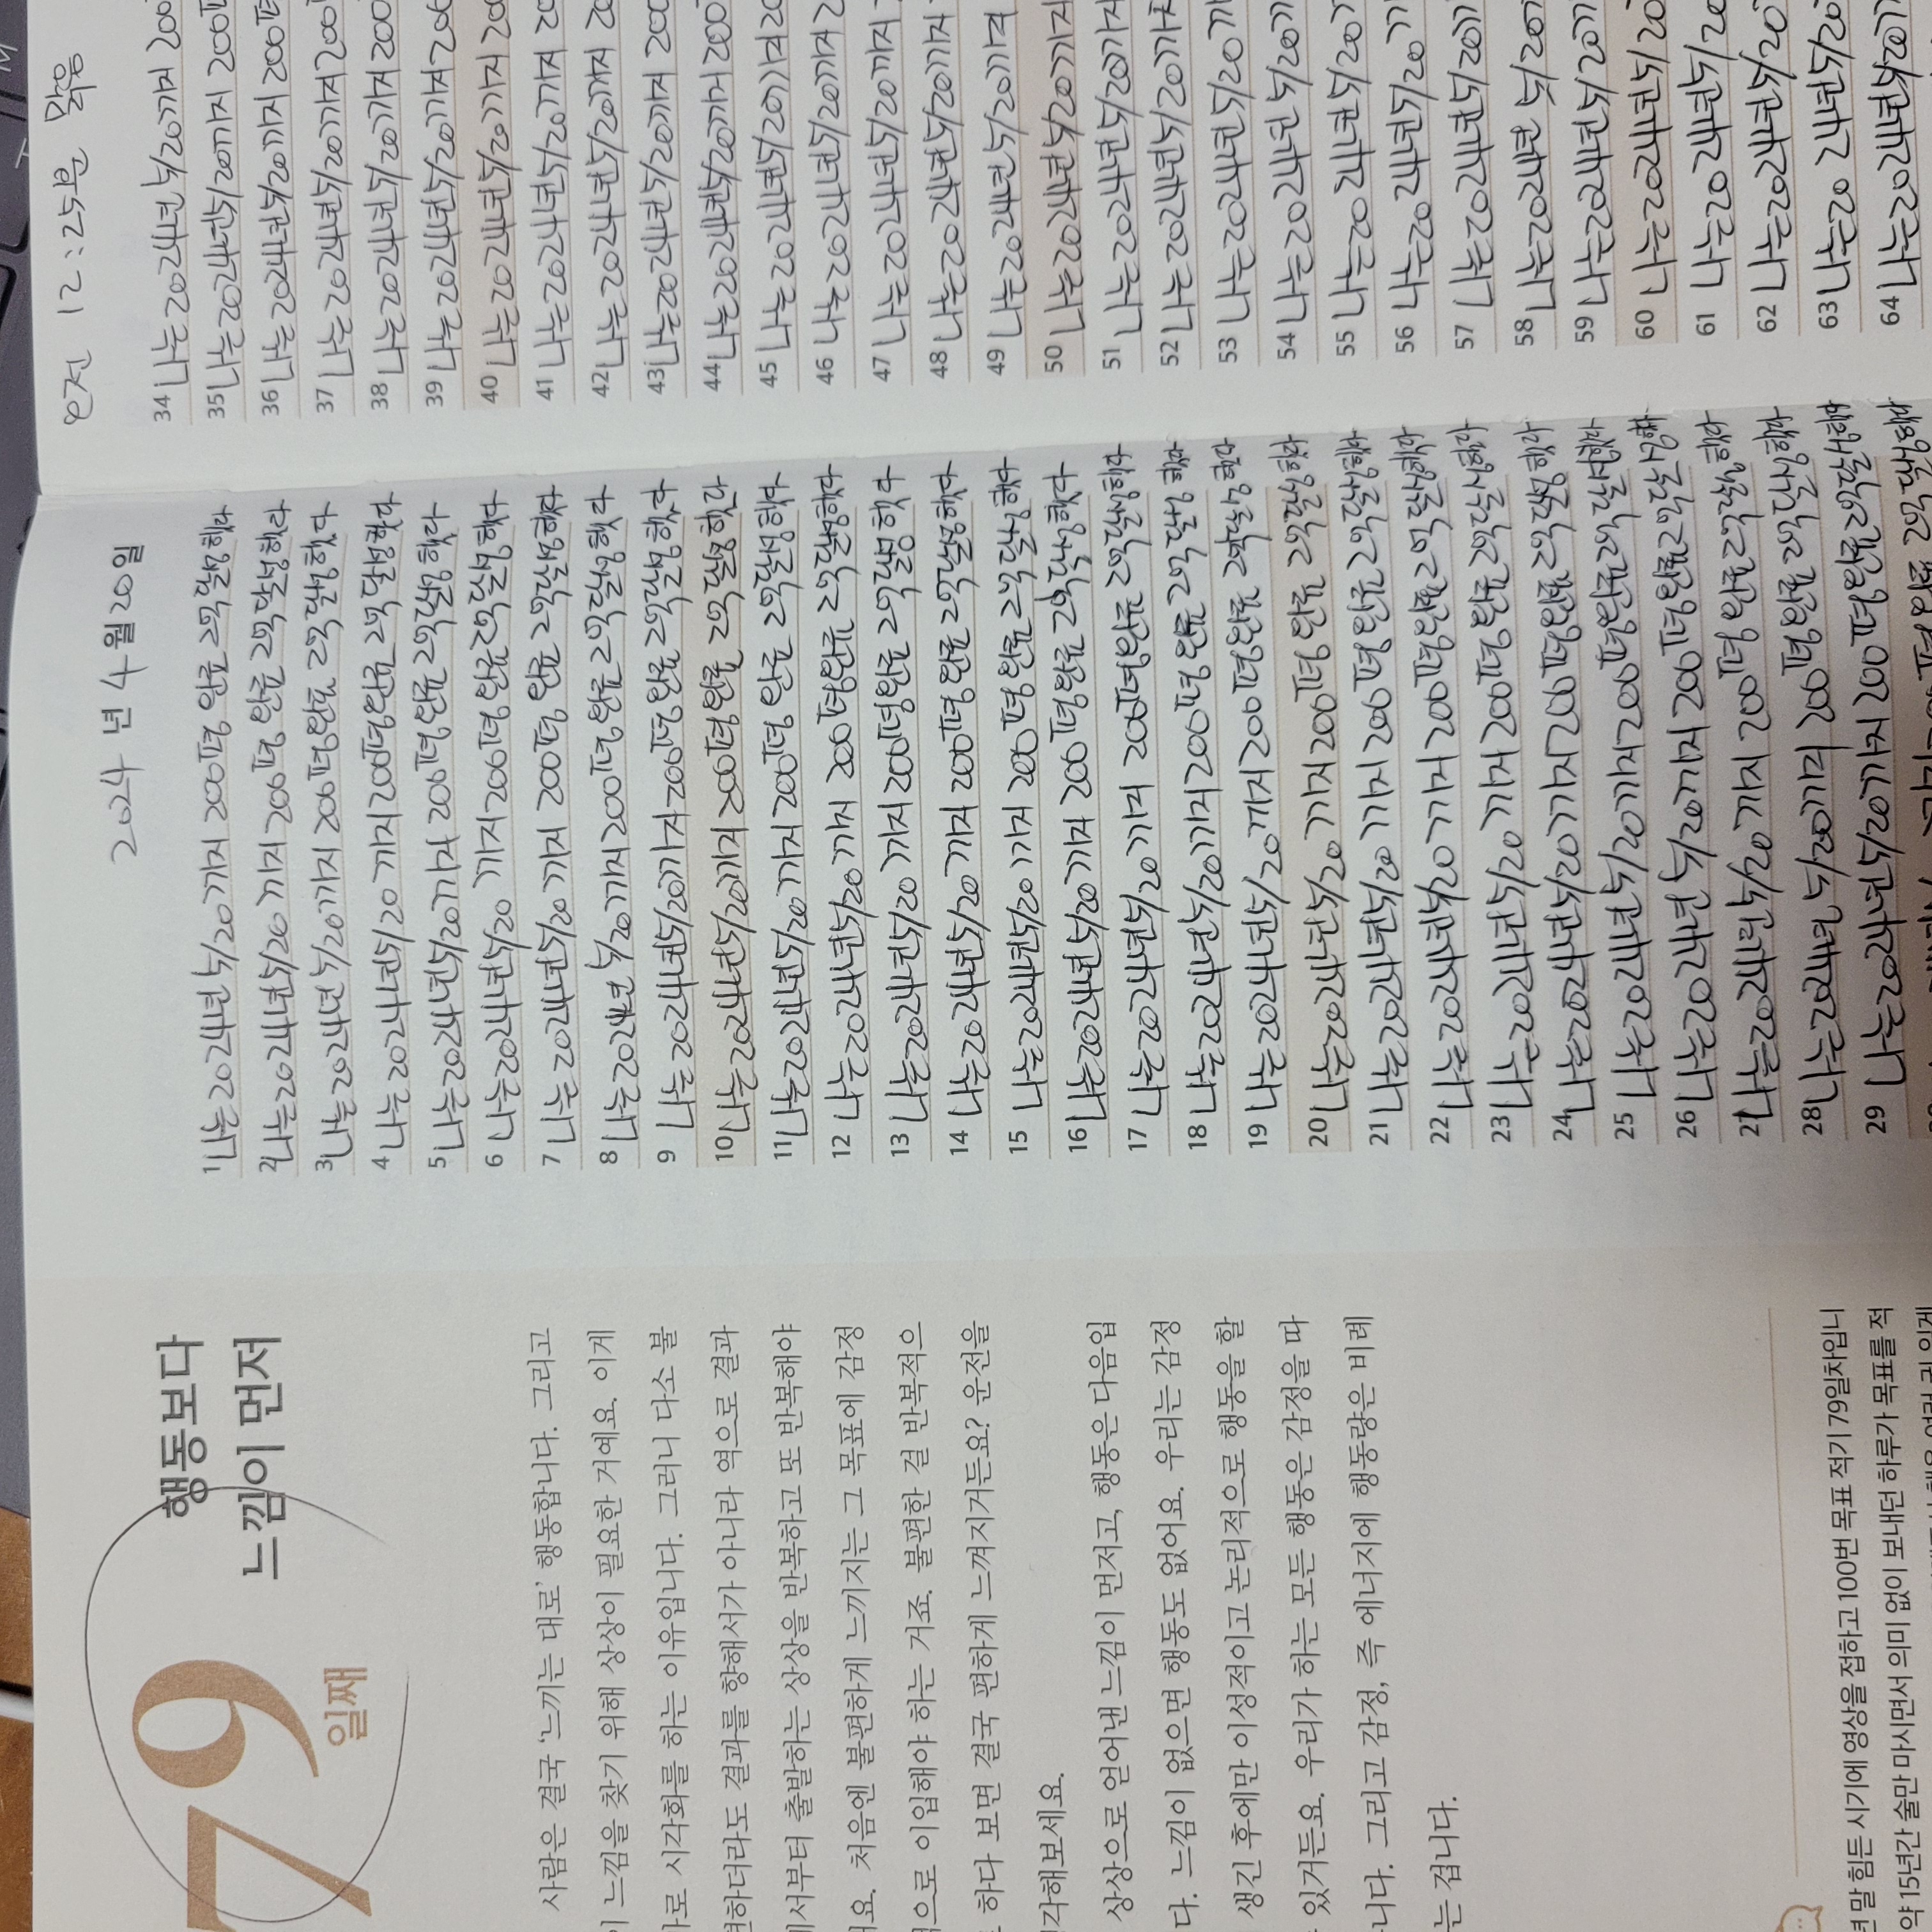 79
일째
행동보다
느낌이 먼저
사람은 결국 '느끼는 대로' 행동합니다. 그리고
느낌을 찾기 위해 상상이 필요한 거예요. 이게
로 시각화를 하는 이유입니다. 그러니 다소 불
하더라도 결과를 향해서가 아니라 역으로 결과
서부터 출발하는 상상을 반복하고 또 반복해야
해요. 처음엔 불편하게 느끼지는 그 목표에 감정
으로 이입해야 하는 거죠. 불편한 걸 반복적으
하다 보면 결국 편하게 느껴지거든요? 운전을
각해보세요.
상상으로 얻어낸 느낌이 먼저고, 행동은 다음입
다. 느낌이 없으면 행동도 없어요. 우리는 감정
생긴 후에만 이성적이고 논리적으로 행동을 할
있거든요. 우리가 하는 모든 행동은 감정을 따
니다. 그리고 감정, 즉 에너지에 행동량은 비례
는 겁니다.
년 말 힘든 시기에 영상을 접하고 100번 목표 적기 79일차입니
약 15년간 술만 마시면서 의미 없이 보내던 하루가 목표를 적
2024년 4월 20일
1 나는 2024년 5/20까지 200 완료 2억 달성했다
2 나는 2024년 5/20까지 200 완료 2억 달성했다
3 나는 2024년 5/20까지 200 완료 2억 달성했다
4 나는 2024년 5/20까지 200 완료 2억 달성했다
5 나는 2024년 5/20까지 200 완료 2억 달성했다
6 나는 2024년 5/20까지 200 완료 2억 달성했다
7 나는 2024년 5/20까지 200 완료 2억 달성했다
8 나는 2024년 5/20까지 200 완료 2억 달성했다
9 나는 2024년 5/20까지 200 완료 2억 달성했다
10 나는 2024년 5/20까지 200 완료 2억 달성했다
11 나는 2024년 5/20까지 200 완료 2억 달성했다
12 나는 2024년 5/20까지 200 완료 2억 달성했다
13 나는 2024년 5/20까지 200 완료 2억 달성했다
14 나는 2024년 5/20까지 200 완료 2억 달성했다
15 나는 2024년 5/20까지 200 완료 2억 달성했다
16 나는 2024년 5/20까지 200 완료 2억 달성했다
17 나는 2024년 5/20까지 200 완료 2억 달성했다
18 나는 2024년 5/20까지 200 완료 2억 달성했다
19 나는 2024년 5/20까지 200 완료 2억 달성했다
20 나는 2024년 5/20까지 200 완료 2억 달성했다
21 나는 2024년 5/20까지 200 완료 2억 달성했다
22 나는 2024년 5/20까지 200 완료 2억 달성했다
23 나는 2024년 5/20까지 200 완료 2억 달성했다
24 나는 2024년 5/20까지 200 완료 2억 달성했다
25 나는 2024년 5/20까지 200 완료 2억 달성했다
26 나는 2024년 5/20까지 200 완료 2억 달성했다
27 나는 2024년 5/20까지 200 완료 2억 달성했다
28 나는 2024년 5/20까지 200 완료 2억 달성했다
29 나는 2024년 5/20까지 200 완료 2억 달성했다
오전 12:25분 맑음
34 나는 2024년 5/20까지 200
35 나는 2024년 5/20까지 200
36 나는 2024년 5/20까지 200
37 나는 2024년 5/20까지 200
38 나는 2024년 5/20까지 200
39 나는 2024년 5/20까지 200
40 나는 2024년 5/20까지 200
41 나는 2024년 5/20까지 20
42 나는 2024년 5/20까지 20
43 나는 2024년 5/20까지 200
44 나는 2024년 5/20까지 200
45 나는 2024년 5/20까지 20
46 나는 2024년 5/20까지 2
47 나는 2024년 5/20까지
48 나는 2024년 5/20까지
49 나는 2024년 5/20까지
50 나는 2024년 5/20까지
51 나는 2024년 5/20까지
52 나는 2024년 5/20까지
53 나는 2024년 5/20까
54 나는 2024년 5/20까
55 나는 2024년 5/20
56 나는 2024년 5/20까
57 나는 2024년 5/20까
58 나는 2024년 5/20
59 나는 2024년 5/20까
60 나는 2024년 5/20
61 나는 2024년 5/20
62 나는 2024년 5/20
63 나는 2024년 5/20
64 나는 2024년 5/20까